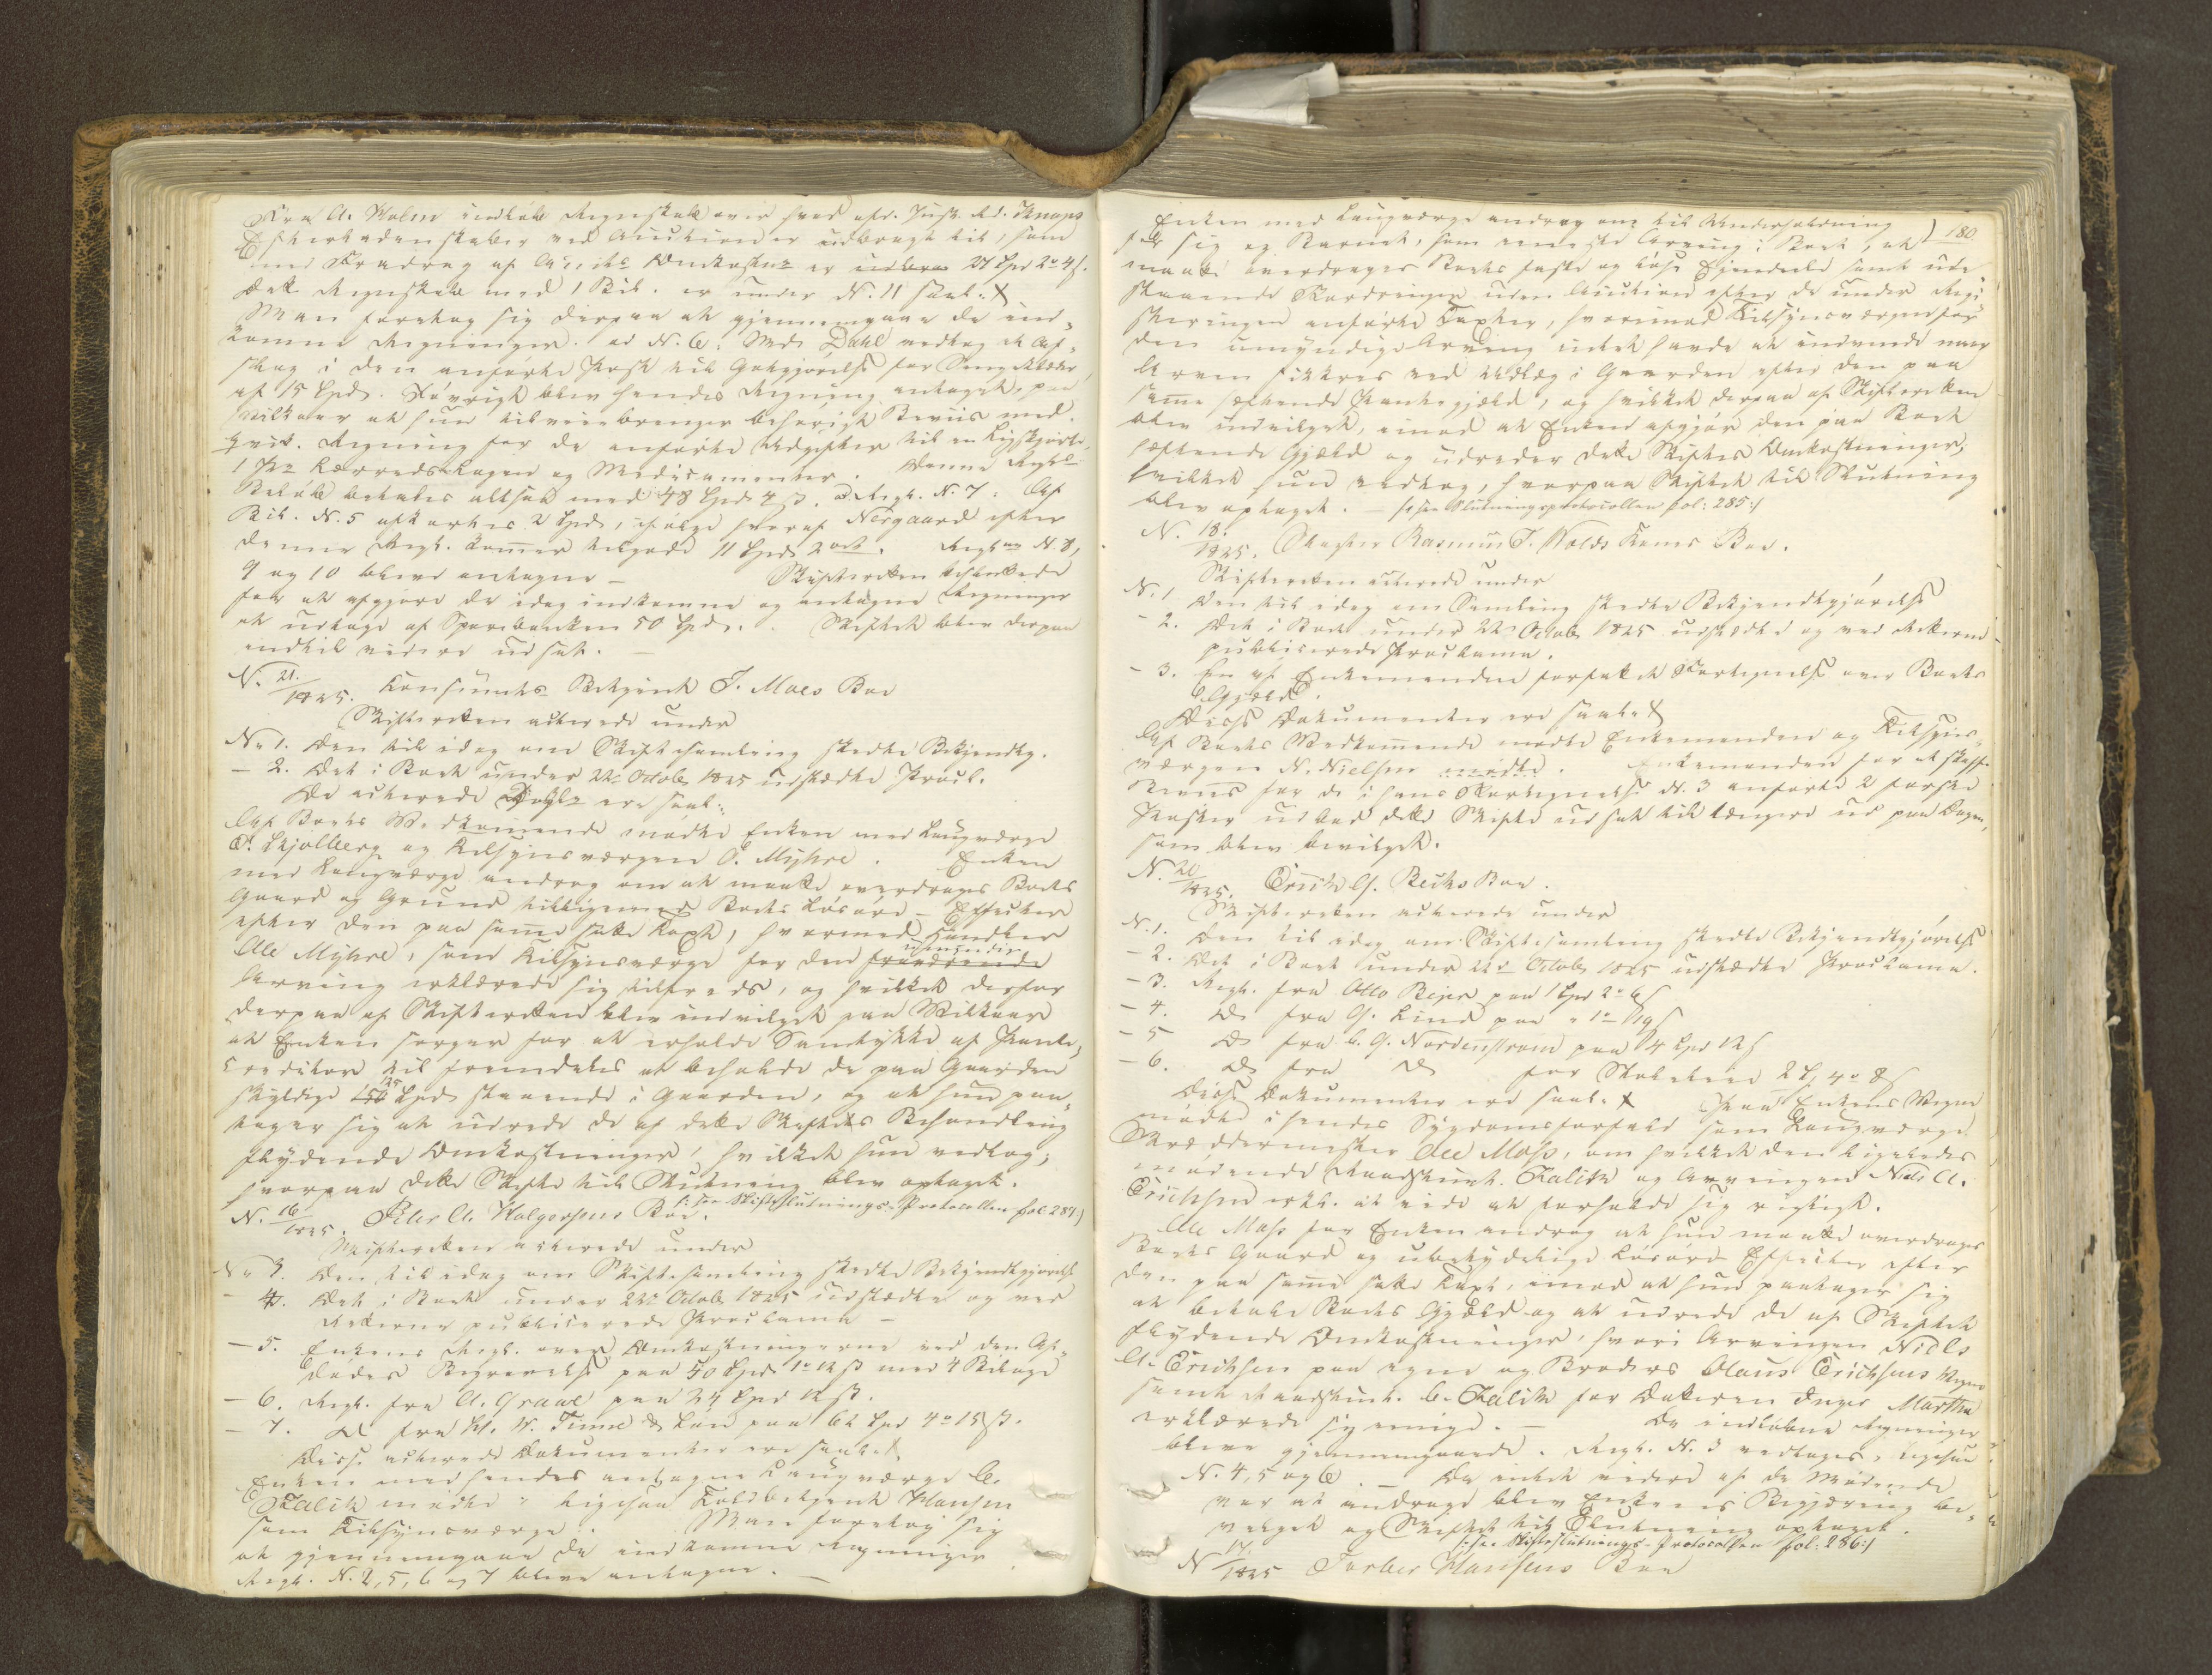 Fra A. Holm indkom Regnskab over hvad afd. Jusk. Rd. Knaps
Efterladenskaber ved Auctionen er udbragt til, som
med Fradrag af Omkostn er 27 Spd 2 o 4 s.
Dette Regnskab med 1 Bil. er under N. 11 saal.
Man foretog sig derpaa at gjennemgaae de ind-
komne Regninger. ad N. 6: Md. Dahl vedtog et Af-
slag i den anførte Post til Godtgjørelse for Sengeklæder
af 15 Spd. Iøvrigt blev hendes Regning antaget, paa
Vilkaar at hun tilveiebringer behørigt Beviis med
qvit. Regning for de anførte Udgifter til en Ligskjorte,
1 Par Lærreds Lagen og Medicamenter. Denne Regn.
Beløb betales altsaa med 48 Spd 4 ß. ad Regn. N. 7: Af
Bil. N. 5 afkortes 2 Spd, ifølge hvoraf Nergaard efter
denne Regn. kommer tilgode 11 Spd 2 ort. Regn N. 8,
9 og 10 bleve antagne – Skifteretten besluttede
for at afgjøre de idag indkomne og antagne Regninger
at udtage af Sparebanken 50 Spd. Skiftet blev derpaa
indtil videre udsat. –
N. 21/1825. Konsumts Betjent J. Moes Boe
Skifteretten acterede under
No 1. Den til idag om Skiftesamling skedte Bekjendtg.
– 2. Det i Boet under 22 Octob 1825 udstædte Procl.
De acterede Dok ere saal:
Af Boets Vedkommende mødte Enken med Laugværge
P. Skjølberg og Tilsynsværgen O. Myhre. Enken
med Laugværge androg om at maatte overdrages Boets
Gaard og Grund tilligemed Boets Løsøre – Effecter
efter den paa samme satte Taxt, hvormed
Ole Myhre, som Tilsynsværge for den fraværende umyndige
Arving erklærede sig tilfreds, og hvilket derfor
derpaa af Skifteretten blev indvilget paa Vilkaar
at Enken sorger for at erholde Samtykke af Pante-
creditor til fremdeles at beholde de paa Gaarden
skyldige 150 125 Spd staaende i Gaarden, og at hun paa-
tager sig at udrede de af dette Skiftes Behandling
flydende Omkostninger, hvilket hun vedtog,
hvorpaa dette Skifte til Slutning blev optaget.
/: see Skifteslutnings-Protocollen fol. 287:/
N. 16/1825. Peter A. Holgersens Boe.
Skifteretten acterede under
No 3. Den til idag om Skiftesamling skedte Bekjendtgjørelse
– 4. Det i Boet under 22 Octob 1825 udstædte og ved
Retterne publicerede Proclama –
– 5. Enkens Regn. over Omkostningerne ved den Af-
dødes Begravelse paa 50 Spd 1 o 12 ß med 4 Bilage
– 6. Regn. fra A. Graae paa 24 Spd 12 ß.
– 7. D fra H. W. Finne & Søn paa 62 Spd 4 o 15 ß.
Disse acterede Dokumenter ere saal.
Enken med hendes antagne Laugværge C.
Kalitz mødte, ligesaa Toldbetjent Hansen
som Tilsynsværge. Man foretog sig
at gjennemgaae de indkomne Regninger
Regn. N. 2, 5, 6 og 7 bleve antagne. –
180
Enken med Laugværge androg om til Underholdning
for sig og Barnet, som eneste Arving i Boet, at
maatte overdrages Boets faste og løse Eiendele samt ude-
staaende Fordringer uden Auction efter de under Regi-
streringen anførte Taxter, hvorimod Tilsynsværgen for
den umyndige Arving intet havde at indvende naar
Arven sikkres ved Udlæg i Gaarden efter den paa
samme heftende Pantegjæld, og hvilket derpaa af Skifteretten
blev indvilget, imod at Enken afgjør den paa Boet
heftende Gjæld og udreder dette Skiftes Omkostninger,
hvilket hun vedtog, hvorpaa Skiftet til Slutning
blev optaget. – /: see Slutningsprotocollen fol: 285:/
N. 18/1825. Rasmus J. Wolds Kones Boe.
Skifteretten acterede under
No. 1 Den til idag om Samling skedte Bekjendtgjørelse
– 2. Det i Boet under 22 Octob 1825 udstædte og ved Retterne
publicerede Proclama.
– 3. En af Enkemanden forfattet Fortegnelse over Boets
Gjæld.
Disse Dokumenter ere saal.
Af Boets Vedkommende mødte Enkemanden og Tilsyns-
værgen N. Nielsen mødte. Enkemanden for at skaffe
Beviis for de i hans Fortegnelse N. 3 anførte 2 første
Poster udbad dette Skifte udsat til længere ud paa Dagen,
som blev bevilget.
N. 20/1825. Erich G. Bechs Boe.
Skifteretten acterede under
N. 1. Den til idag om Skiftesamling skedte Bekjendtgjørelse
– 2. Det i Boet under 22 Octob 1825 udstædte Proclama.
– 3. Regn. fra Otto Bejer paa 1 Spd 2 o 6 s
– 4. D fra G. Lind paa " 1 o 19 s
– 5 D fra C. G. Nordenstrøm paa 4 Spd 12 s
– 6. D fra D for 2 S, 4 o 8 s
Disse Dokumenter ere saal. Paa Enkens Vegne
mødte i hendes Sygdomsforfald som Laugværge
Skræddermester Ole Moss, om hvilket den ligeledes
mødende Raadstuesk. Kalitz og Arvingen Niels A.
Erichsen erkl. at vide at forholde sig rigtigt.
Ole Moss for Enken androg at hun maatte overdrages
Boets Gaard og ubetydelige Løsøre Effecter efter
den paa samme satte Taxt, imod at hun paatager sig
at betale Boets Gjæld og at udrede de af Skiftet
flydende Omkostninger, hvori Arvingen Niels
A. Erichsen paa egne og Broders Olaus Erichsens Vegne
samt Raadstuesk. C. Kalitz for Datteren Inger Martha
erklærede sig enige. – De indkomne Regninger
bleve gjennemgaaede. Regn. N. 3 vedtages, ligesaa
N. 4, 5 og 6. – Da intet videre af de Mødende
var at andrage blev Enkens Begjæring be-
vilget og Skiftet til Slutning optaget.
/: see Skifteslutnings-Protocollen fol: 286:/
N 17/1825 Torber Hansens Boe